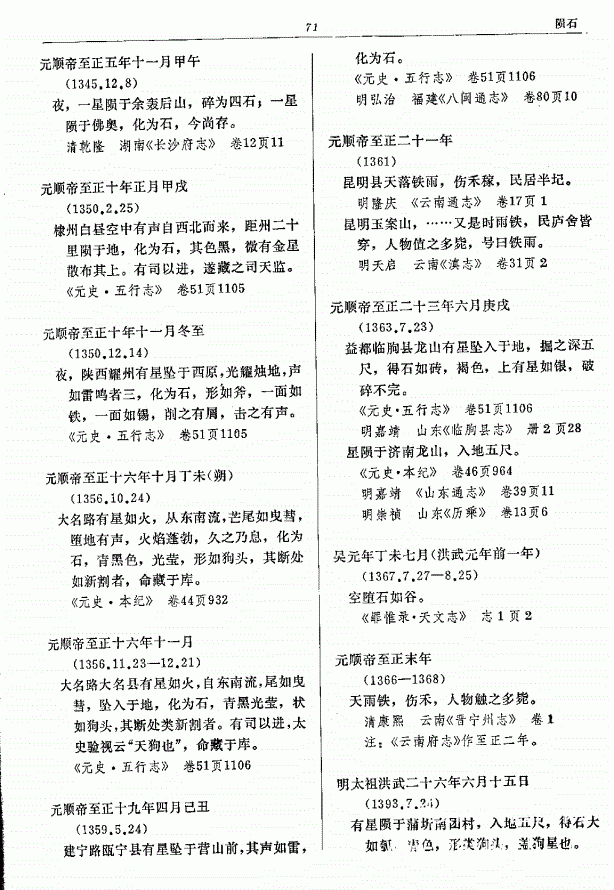 71
陨石
元顺帝至正五年十一月甲午
(1345.12.8)
夜，一星陨于余袅后山，碎为四石；一星
陨于佛奥，化为石，今尚存。
清乾隆 湖南《长沙府志》 卷12页11
元顺帝至正十年正月甲戌
(1350.2.25)
棣州白昼空中有声自西北而来，距州二十
里陨于地，化为石，其色黑，微有金星
散布其上。有司以进，遂藏之司天监。
《元史·五行志》 卷51页1105
元顺帝至正十年十一月冬至
(1350.12.14)
夜，陕西耀州有星坠于西原，光耀烛地，声
如雷鸣者三，化为石，形如斧，一面如
铁，一面如锡，削之有屑，击之有声。
《元史·五行志》 卷51页1105
元顺帝至正十六年十月丁未(朔)
(1356.10.24)
大名路有星如火，从东南流，芒尾如曳彗，
堕地有声，火焰蓬勃，久之乃息，化为
石，青黑色，光莹，形如狗头，其断处
如新割者，命藏于库。
《元史·本纪》 卷44页932
元顺帝至正十六年十一月
(1356.11.23—12.21)
大名路大名县有星如火，自东南流，尾如曳
彗，坠入于地，化为石，青黑光莹，状
如狗头，其断处类新割者。有司以进，太
史验视云“天狗也”，命藏于库。
《元史·五行志》 卷51页1106
元顺帝至正十九年四月己丑
(1359.5.24)
建宁路瓯宁县有星坠于营山前，其声如雷，
化为石。
《元史·五行志》 卷51页1106
明弘治 福建《八闽通志》 卷80页10
元顺帝至正二十一年
(1361)
昆明县天落铁雨，伤禾稼，民居半圮。
明隆庆 《云南通志》 卷17页1
昆明玉案山，……又是时雨铁，民庐舍皆
穿，人物值之多毙，号曰铁雨。
明天启 云南《滇志》 卷31页2
元顺帝至正二十三年六月庚戌
(1363.7.23)
益都临朐县龙山有星坠入于地，掘之深五
尺，得石如砖，褐色，上有星如银，破
碎不完。
《元史·五行志》 卷51页1106
明嘉靖 山东《临朐县志》 册2页28
星陨于济南龙山，入地五尺。
《元史·本纪》 卷46页964
明嘉靖 《山东通志》 卷39页11
明崇祯 山东《历乘》 卷13页6
吴元年丁未七月(洪武元年前一年)
(1367.7.27—8.25)
空堕石如谷。
《罪惟录·天文志》 志1页2
元顺帝至正末年
(1366—1368)
天雨铁，伤禾，人物触之多毙。
清康熙 云南《晋宁州志》 卷1
注：《云南府志》作至正二年。
明太祖洪武二十六年六月十五日
(1393.7.24)
有星陨于蒲圻南团村，入地五尺，得石大
如 青色，形类狗头，盖狗星也。